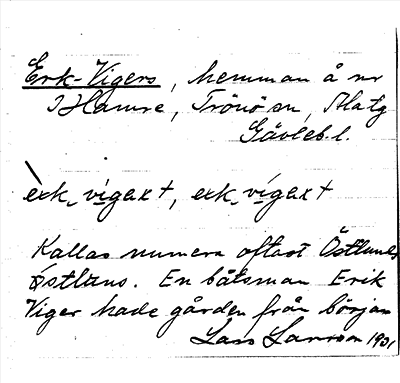 Erk-Vigers, hemman å nr
1 Hamre, Trönö sn, Ala tg
Gävleb. l.
èrk vigaxt, erk vígaxt
Kallas numera oftast Östlunds
Östluns. En båtsman Erik
Viger hade gården från början
Lars Larsson 1931